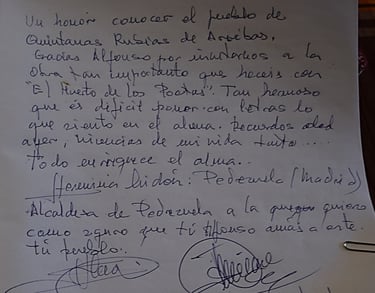 Un honor conocer el pueblo de
Quintanas Rubias de Arribas.
Gracias Alfonso por invitarnos a la
obra tan importante que haceis con
"El Huerto de los Poetas". Tan hermoso
que és dificil poner con letras lo
que siento en el alma. Recuerdos del
ayer, vivencias de mi vida
Todo enriquece el alma..
Herminia Pedrezuela (Madrid)
Alcaldesa de Pedrezuela a la quiero
como seguro que tú Alfonso amas a este
tú pueblo.